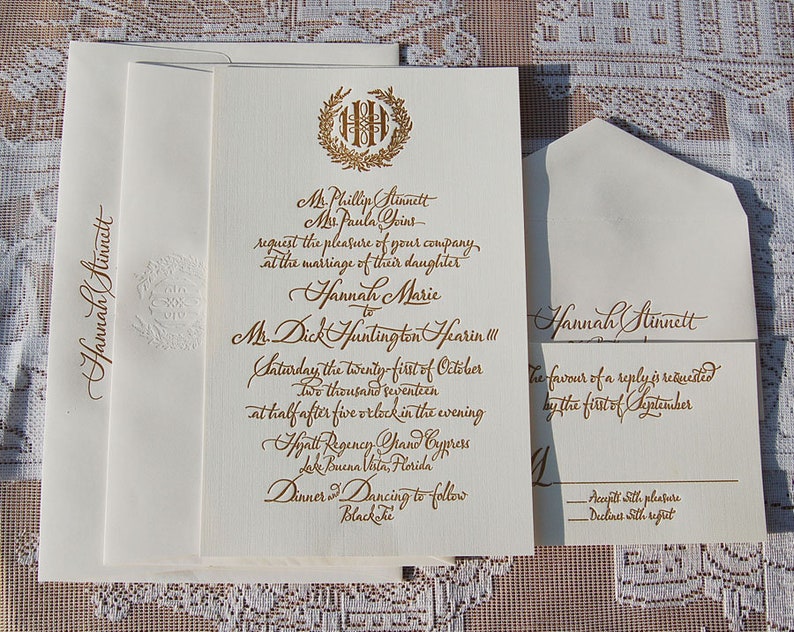 HH
Mr. Phillip Stinnett
Mrs. Paula Goins
request the pleasure of your company
at the marriage of their daughter
Hannah Marie
to
Mr. Dick Huntington Hearin III
Saturday, the twenty-first of October
two thousand seventeen
at half after five o'clock in the evening
Hyatt Regency Grand Cypress
Lake Buena Vista, Florida
Dinner and Dancing to follow
Black Tie
Hannah Stinnett
Hannah Stinnett
The favour of a reply is requested
by the first of September
M
Accepts with pleasure
Declines with regret